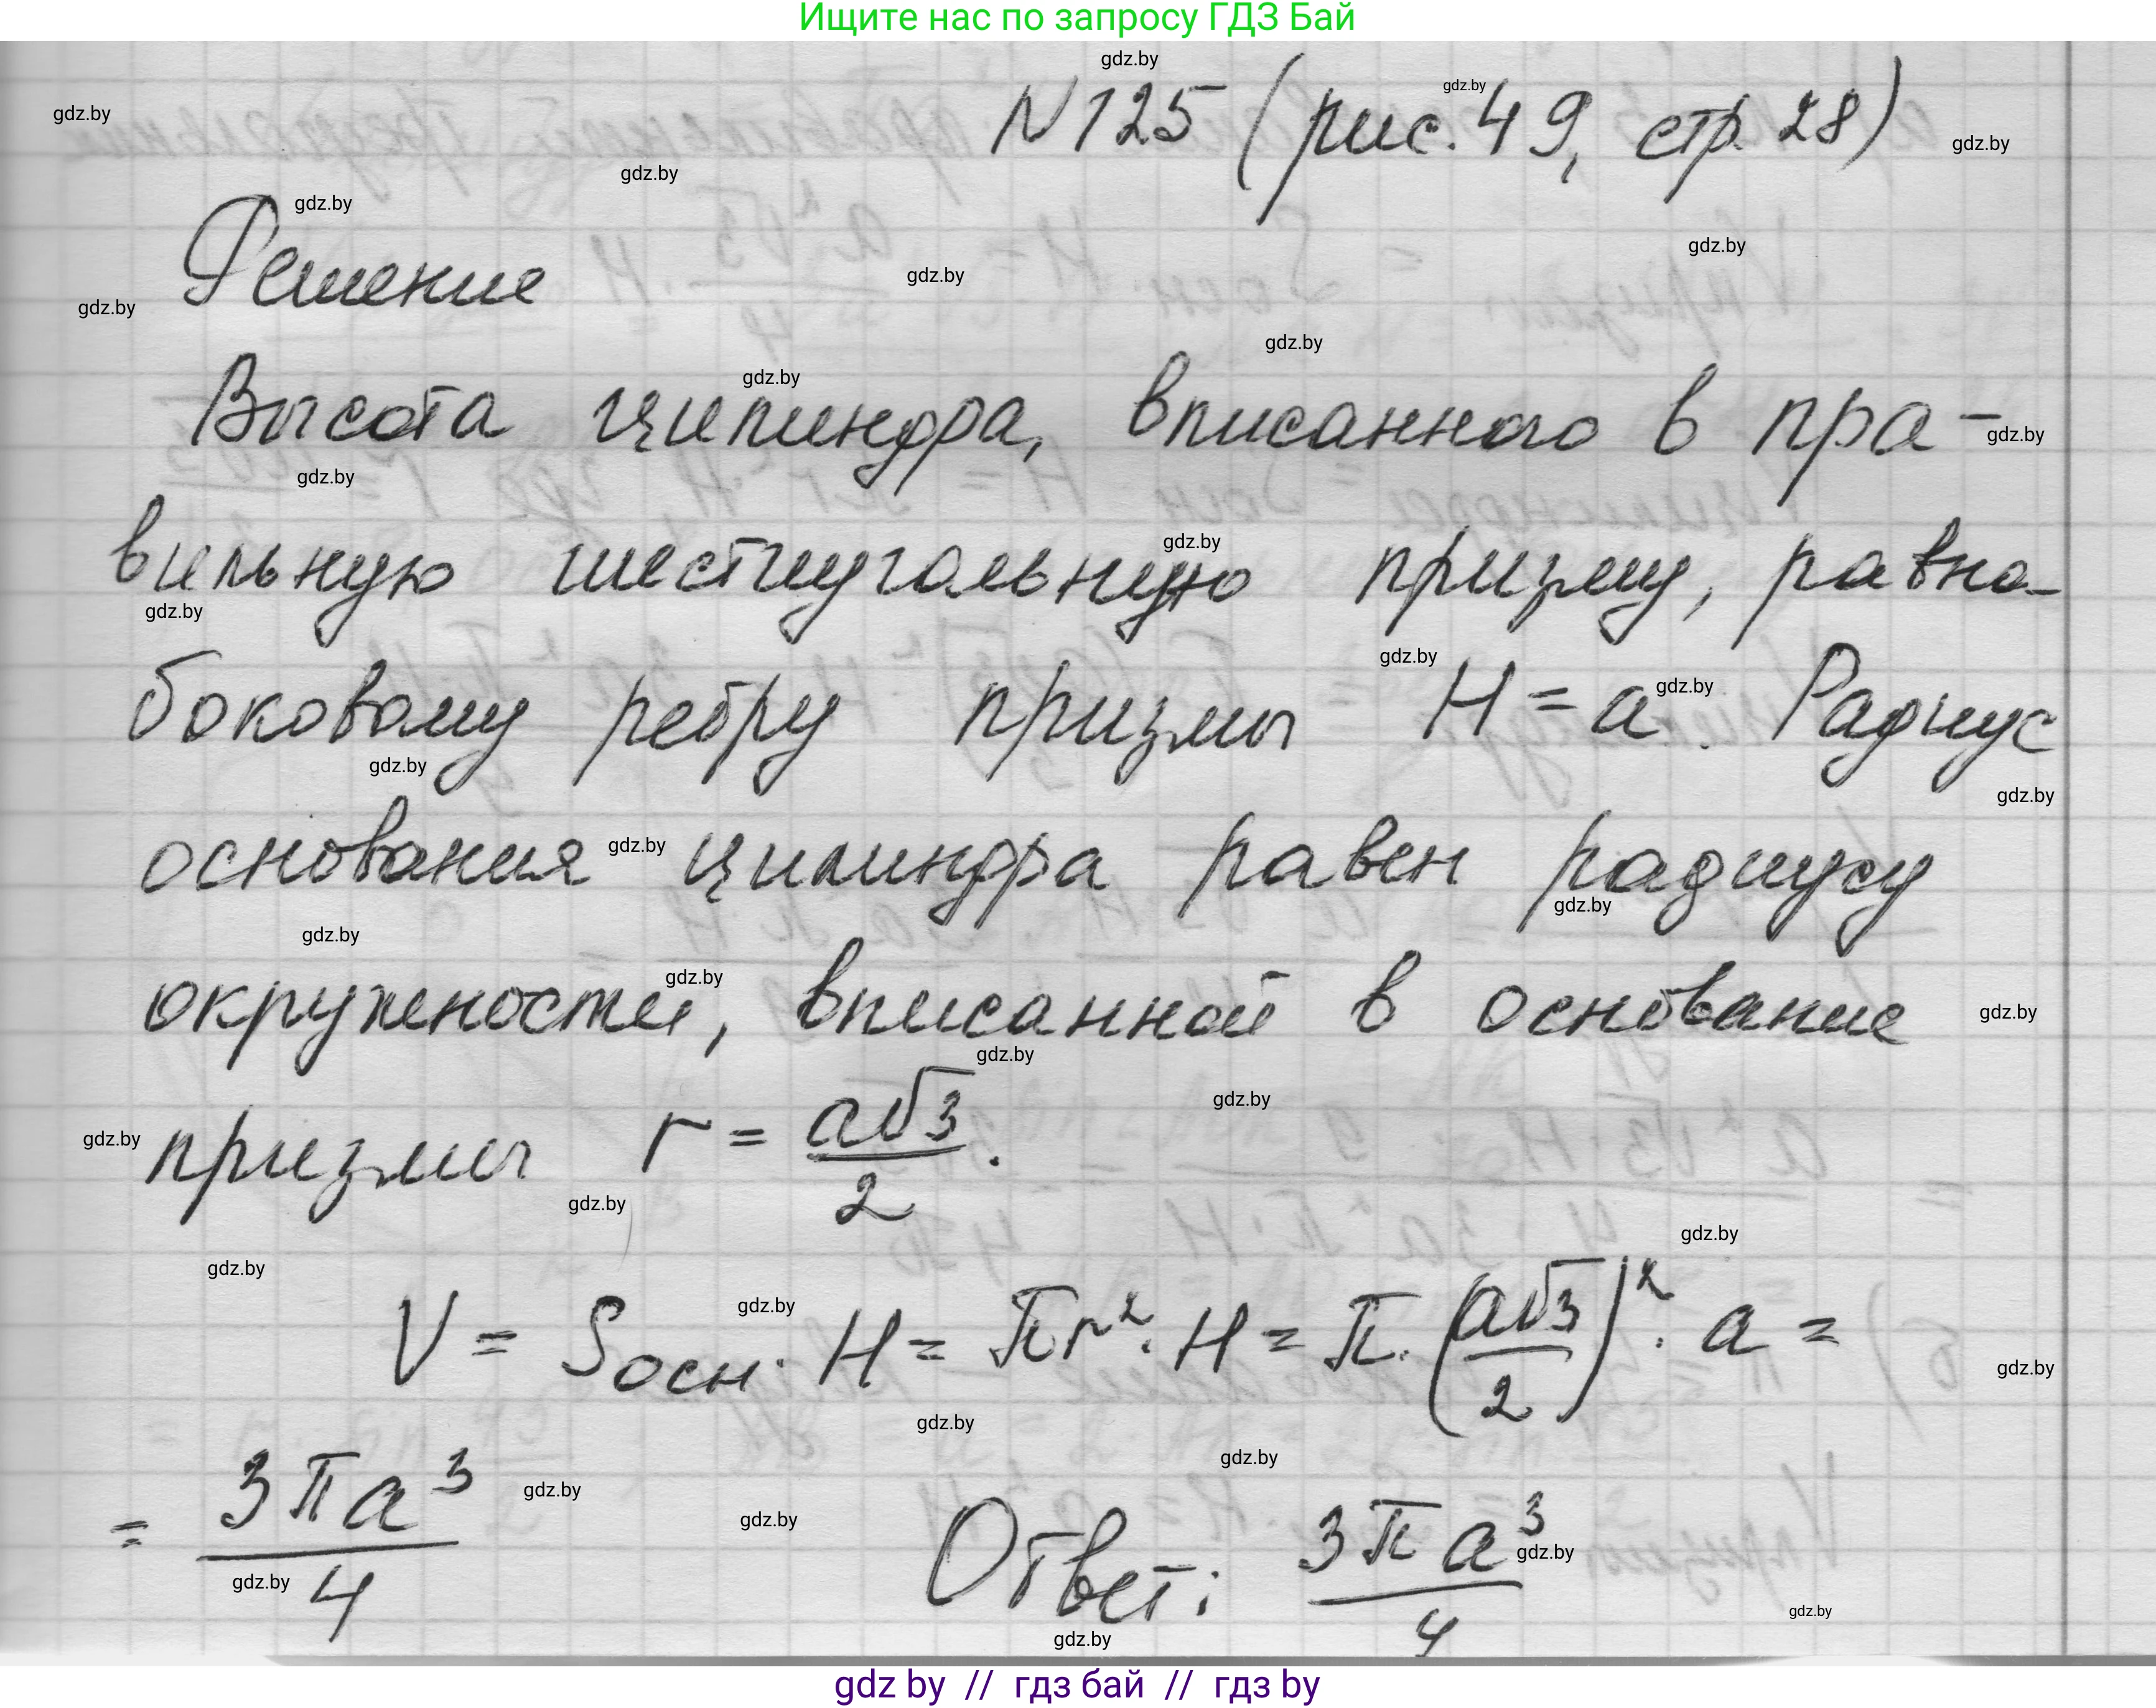 Ищите нас по запросу ГДЗ Бай
N 125 (рис. 49, стр. 28)
Решение
Высота цилиндра, вписанного в пра-
вильную шестиугольную призму, равна
боковому ребру призмы H = a. Радиус
основания цилиндра равен радиусу
окружности, вписанной в основание
призмы r = a√3/2.
V = Sосн · H = πr² · H = π · (a√3/2)² · a =
= 3πa³/4 Ответ: 3πa³/4
gdz by // гдз бай // гдз by